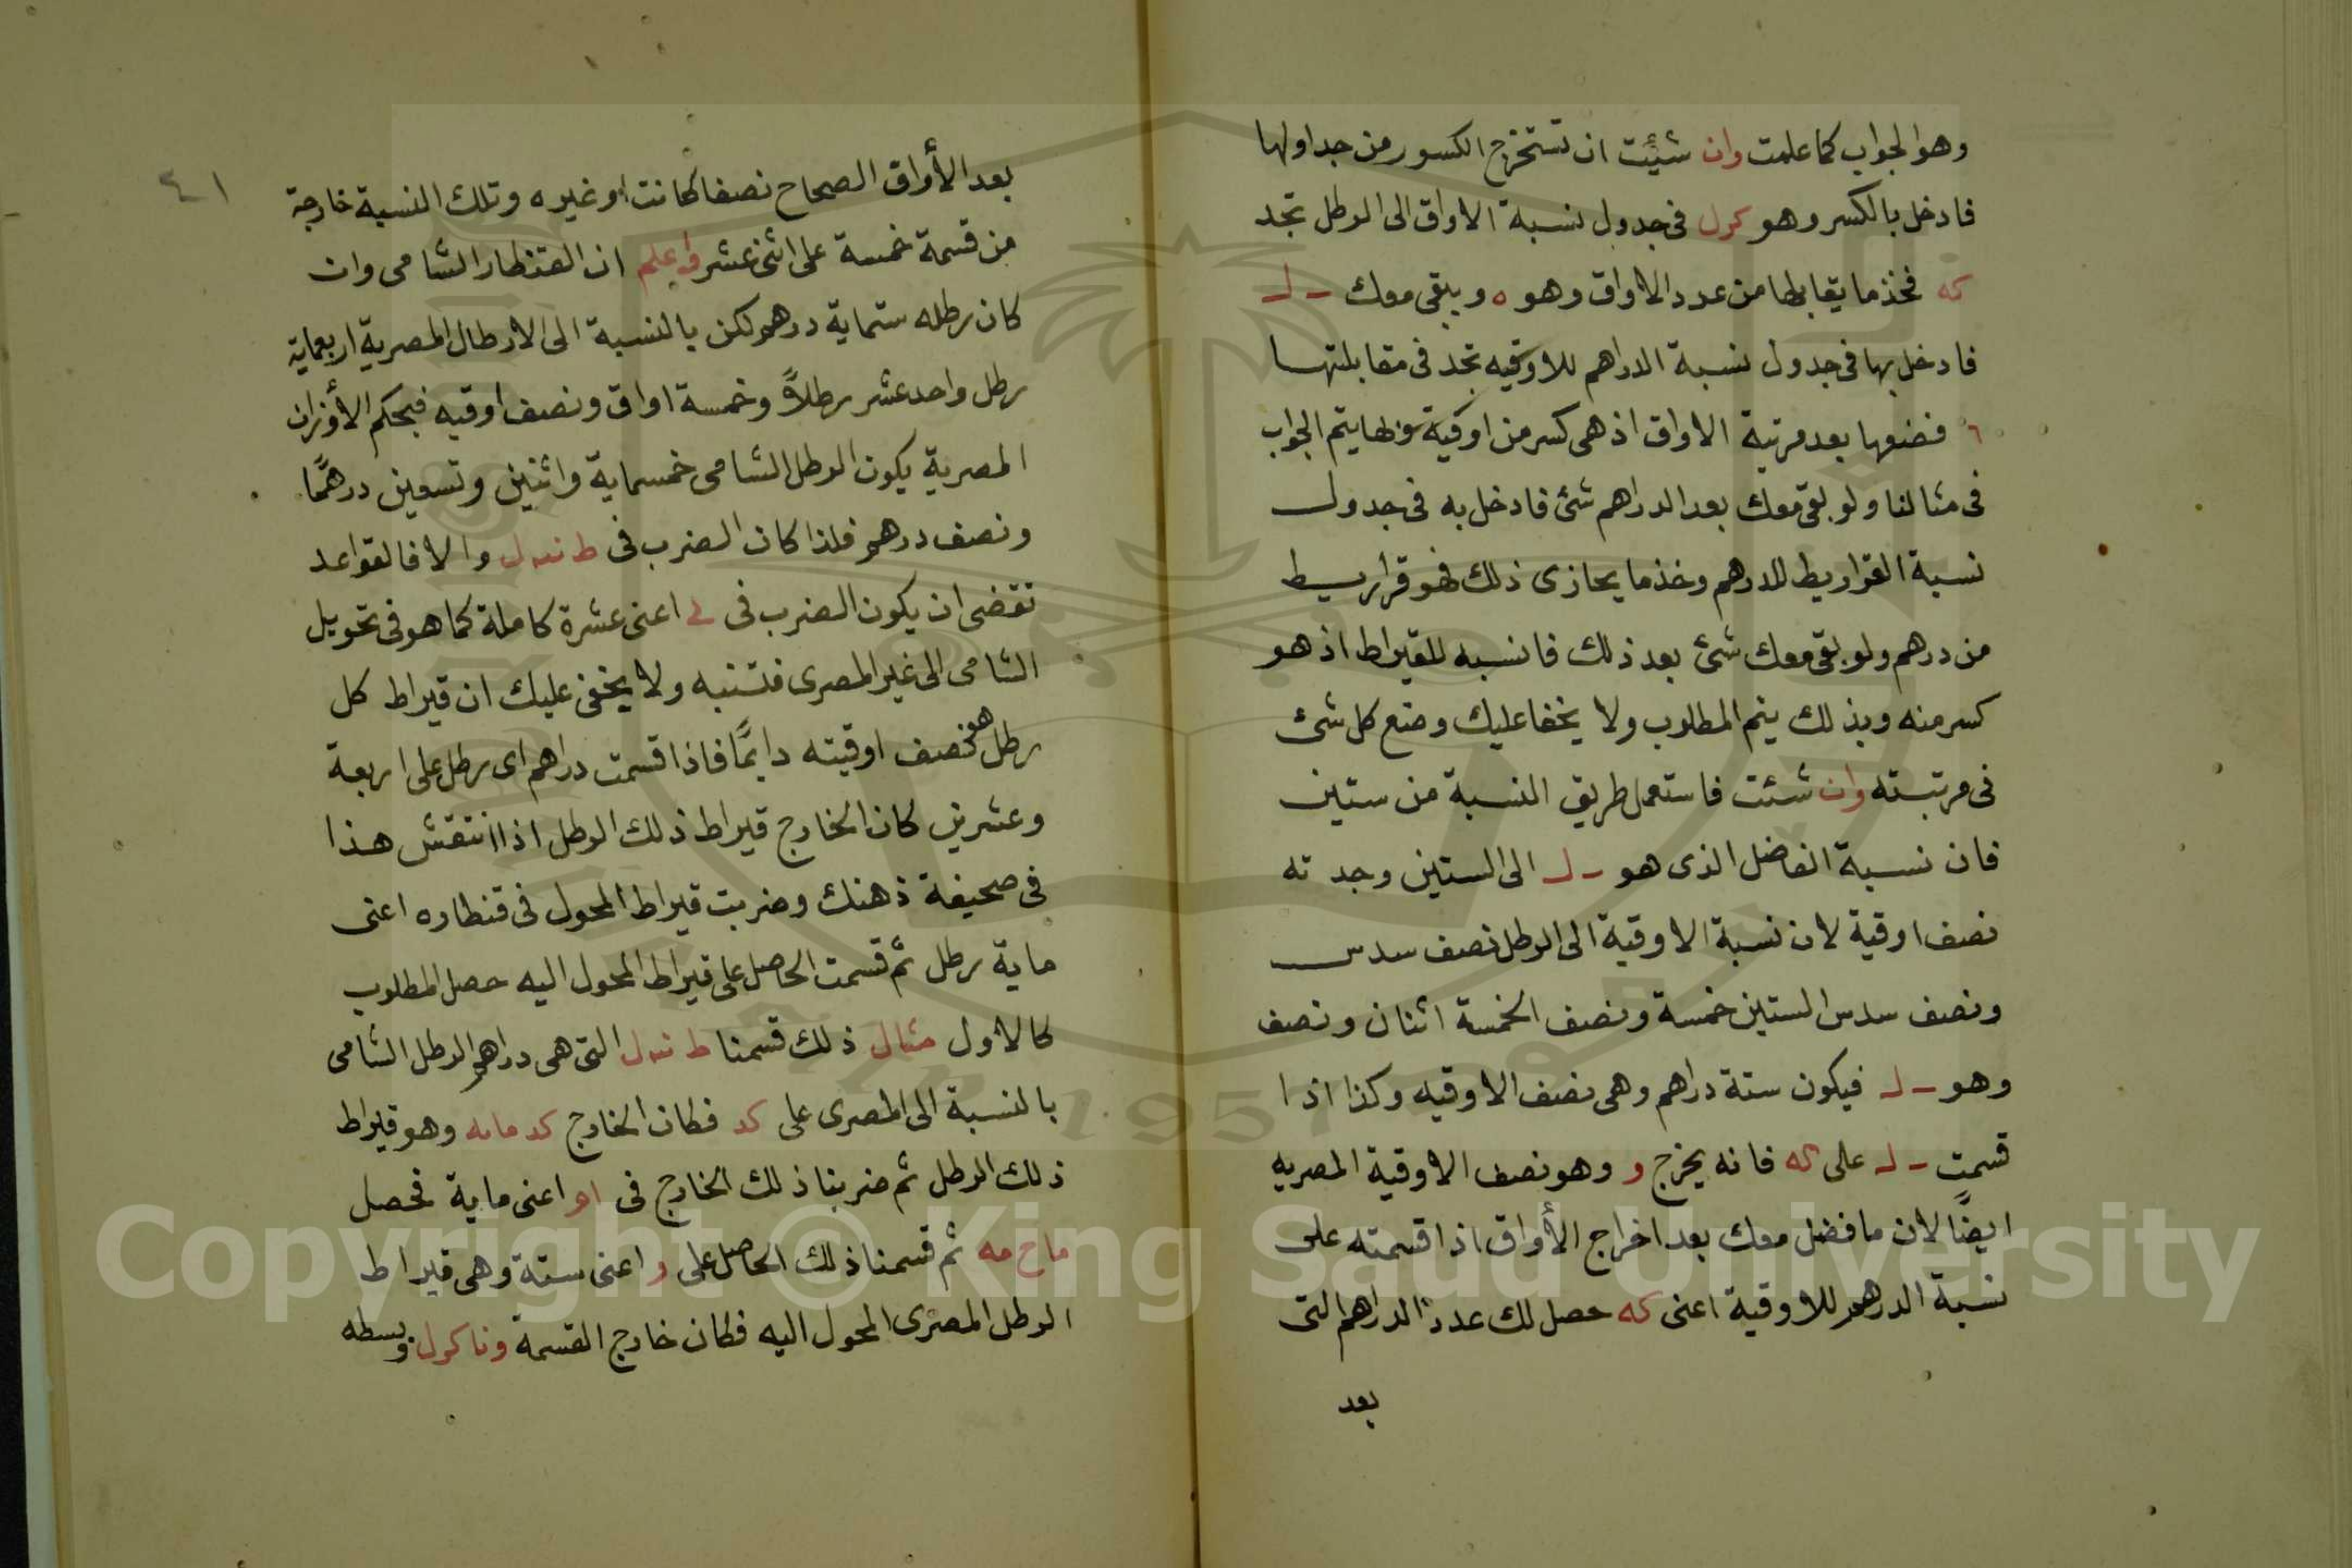 وهو الجواب كما علمت وان شيئت ان تستخرج الكسور من جداولها
فادخل بالكسر وهو كرل فى جدول نسبة الاواق الى الرطل تجد
كه فخذ ما يقابلها من عدد الاواق وهو ه ويبقى معك ـ ل
فادخل بها فى جدول نسبة الدراهم للاوقيه تجد فى مقابلتها
٦ فضعها بعد مرتبة الاواق اذ هى كسر من اوقية وبها يتم الجواب
فى مثالنا ولو بقى معك بعد الدراهم شئ فادخل به فى جدول
نسبة القراريط للدرهم وخذ ما يحازى ذلك فهو قراريط
من درهم ولو بقى معك شئ بعد ذلك فانسبه للقيراط اذ هو
كسر منه وبذلك يتم المطلوب ولا يخفا عليك وضع كل شئ
فى مرتبته وان شئت فاستعمل طريق النسبة من ستين
فان نسبة الفاضل الذى هو ـ ل الى الستين وجدته
نصف اوقية لان نسبة الاوقية الى الرطل نصف سدس
ونصف سدس الستين خمسة ونصف الخمسة اثنان ونصف
وهو ـ ل فيكون ستة دراهم وهى نصف الاوقيه وكذا اذا
قسمت ـ ل على كه فانه يخرج و وهو نصف الاوقية المصريه
ايضًا لان ما فضل معك بعد اخراج الأواق اذا قسمته على
نسبة الدرهم للاوقية اعنى كه حصل لك عدد الدراهم التى
بعد
٤١
بعد الأواق الصحاح نصفا كانت او غيره وتلك النسبة خارجة
من قسمة خمسة على اثنى عشر واعلم ان القنطار الشامى وان
كان رطله ستماية درهم لكن بالنسبة الى الارطال المصرية اربعماية
رطل واحد عشر رطلاً وخمسة اواق ونصف اوقيه فبحكم الأوزان
المصرية يكون الرطل الشامى خمسماية واثنين وتسعين درهمًا
ونصف درهم فلذا كان الضرب فى ط نىه ل والا فالقواعد
تقضى ان يكون الضرب فى ى اعنى عشرة كاملة كما هو فى تحويل
الشامى الى غير المصرى فتنبه ولا يخفى عليك ان قيراط كل
رطل هو نصف اوقيته دايمًا فاذا قسمت دراهم اى رطل على اربعة
وعشرين كان الخارج قيراط ذلك الرطل اذا انتقش هذا
فى صحيفة ذهنك وضربت قيراط المحول فى قنطاره اعنى
ماية رطل ثم قسمت الحاصل على قيراط المحول اليه حصل المطلوب
كالاول مثال ذلك قسمنا ط نىه ل التى هى دراهم الرطل الشامى
بالنسبة الى المصرى على كد فكان الخارج كد مايه وهو قيراط
ذلك الرطل ثم ضربنا ذلك الخارج فى ام اعنى ماية فحصل
ماح مه ثم قسمنا ذلك الحاصل على و اعنى ستة وهى قيراط
الرطل المصرى المحول اليه فكان خارج القسمة ونا كرل وبسطه
Copyright © King Saud University
1957